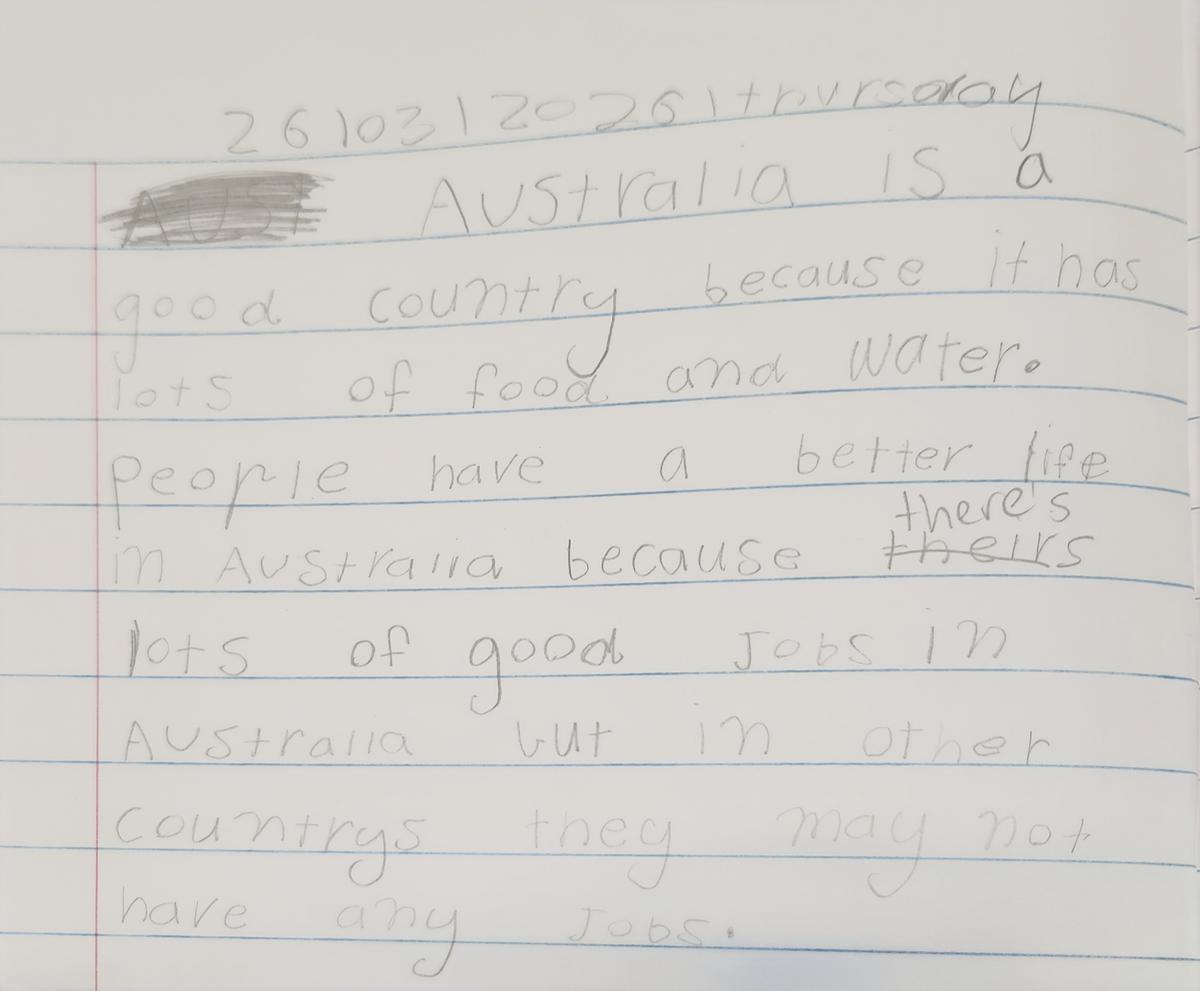 26/03/2026/thursday
AUST Australia is a
good country because it has
lots of food and water.
people have a better life
there's
in Australia because theirs
lots of good Jobs in
Australia but in other
countrys they may not
have any Jobs.